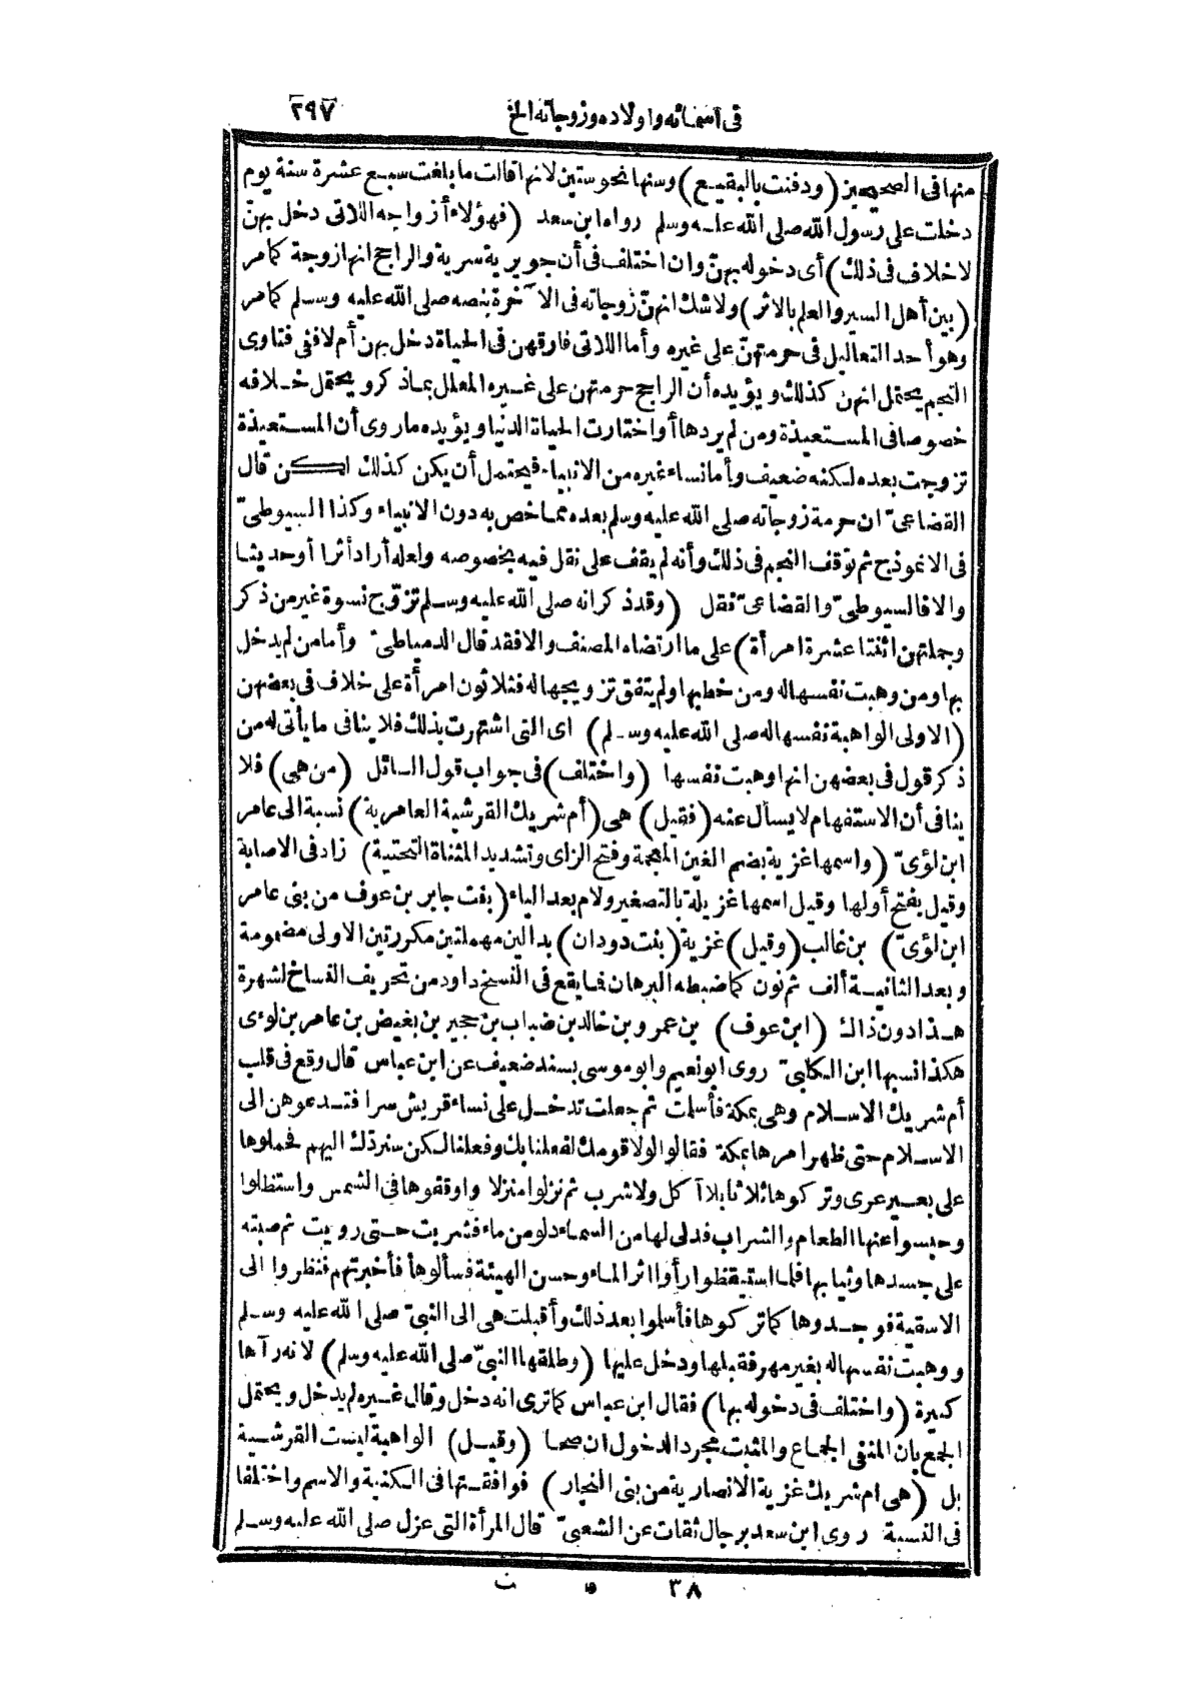 في أسمائه واولاده وزوجاته الخ ٢٩٧
منها في الصحيحين (ودفنت بالبقيع) وسنها نحو ستين لانها قالت ما بلغت سبع عشرة سنة يوم
دخلت على رسول الله صلى الله عليه وسلم رواه ابن سعد (فهؤلاء أزواجه اللاتى دخل بهنّ
لا خلاف فى ذلك) أى دخوله بهنّ وان اختلف فى أن جويرية سرية والراجح انها زوجة كما مر
(بين أهل السير والعلم بالاثر) ولا شك انهنّ زوجاته فى الآخرة بنصه صلى الله عليه وسلم كما مر
وهو أحد التعاليل فى حرمتهنّ على غيره وأما اللاتى فارقهن فى الحياة دخل بهن أم لا ففى فتاوى
النجم يحتمل انهن كذلك ويؤيده أن الراجح حرمتهن على غيره المعلل بما ذكر ويحتمل خلافه
خصوصا فى المستعيذة ومن لم يردها أو اختارت الحياة الدنيا ويؤيده ما روى أن المستعيذة
تزوجت بعده لكنه ضعيف وأما نساء غيره من الانبياء فيحتمل أن يكن كذلك لكن قال
القضاعىّ ان حرمة زوجاته صلى الله عليه وسلم بعده مما خص به دون الانبياء وكذا السيوطىّ
فى الانموذج ثم توقف النجم فى ذلك وأنه لم يقف على نقل فيه بخصوصه ولعله أراد أثرا أو حديثا
والا فالسيوطىّ والقضاعىّ نقل (وقد ذكر انه صلى الله عليه وسلم تزوّج نسوة غير من ذكر
وجملتهن اثنتا عشرة امرأة) على ما ارتضاه المصنف والا فقد قال الدمياطىّ وأما من لم يدخل
بها ومن وهبت نفسها له ومن خطبها ولم يتفق تزويجها له فثلاثون امرأة على خلاف فى بعضهن
(الاولى الواهبة نفسها له صلى الله عليه وسلم) اى التى اشتهرت بذلك فلا ينافى ما يأتى له من
ذكر قول فى بعضهن انها وهبت نفسها (واختلف) فى جواب قول السائل (من هى) فلا
ينافى أن الاستفهام لا يسأل عنه (فقيل) هى (أم شريك القرشية العامرية) نسبة الى عامر
ابن لؤىّ (واسمها غزية بضم الغين المعجمة وفتح الزاى وتشديد المثناة التحتية) زاد فى الاصابة
وقيل بفتح أولها وقيل اسمها غزيلة بالتصغير ولام بعد الياء (بنت جابر بن عوف من بنى عامر
ابن لؤىّ) بن غالب (وقيل) غزية (بنت دودان) بدالين مهملتين مكررتين الاولى مضمومة
وبعد الثانية ألف ثم نون كما ضبطه البرهان فما يقع فى النسخ داود من تحريف النساخ لشهرة
هذا دون ذاك (ابن عوف) بن عمرو بن خالد بن ضباب بن حجير بن بغيض بن عامر بن لوءى
هكذا نسبها ابن الكلبىّ روى ابو نعيم وابو موسى بسند ضعيف عن ابن عباس قال وقع فى قلب
أم شريك الاسلام وهى بمكة فأسلمت ثم جعلت تدخل على نساء قريش سرا فتدعوهن الى
الاسلام حتى ظهر امرها بمكة فقالوا لولا قومك لفعلنا بك وفعلنا لكن سنردّك اليهم فحملوها
على بعير عرى وتركوها ثلاثا بلا أكل ولا شرب ثم نزلوا منزلا واوقفوها فى الشمس واستظلوا
وحبسوا عنها الطعام والشراب فدلى لها من السماء دلو من ماء فشربت حتى رويت ثم صبته
على جسدها وثيابها فلما استيقظوا رأوا اثر الماء وحسن الهيئة فسألوها فأخبرتهم فنظروا الى
الاسقية فوجدوها كما تركوها فأسلموا بعد ذلك وأقبلت هى الى النبىّ صلى الله عليه وسلم
ووهبت نفسها له بغير مهر فقبلها ودخل عليها (وطلقها النبىّ صلى الله عليه وسلم) لانه رآها
كبيرة (واختلف فى دخوله بها) فقال ابن عباس كما ترى انه دخل وقال غيره لم يدخل ويحتمل
الجمع بان المنفى الجماع والمثبت مجرد الدخول ان صحا (وقيل) الواهبة ليست القرشية
بل (هى ام شريك غزية الانصارية من بنى النجار) فوافقتها فى الكنية والاسم واختلفا
فى النسبة روى ابن سعد برجال ثقات عن الشعبىّ قال المرأة التى عزل صلى الله عليه وسلم
٣٨ ق ت